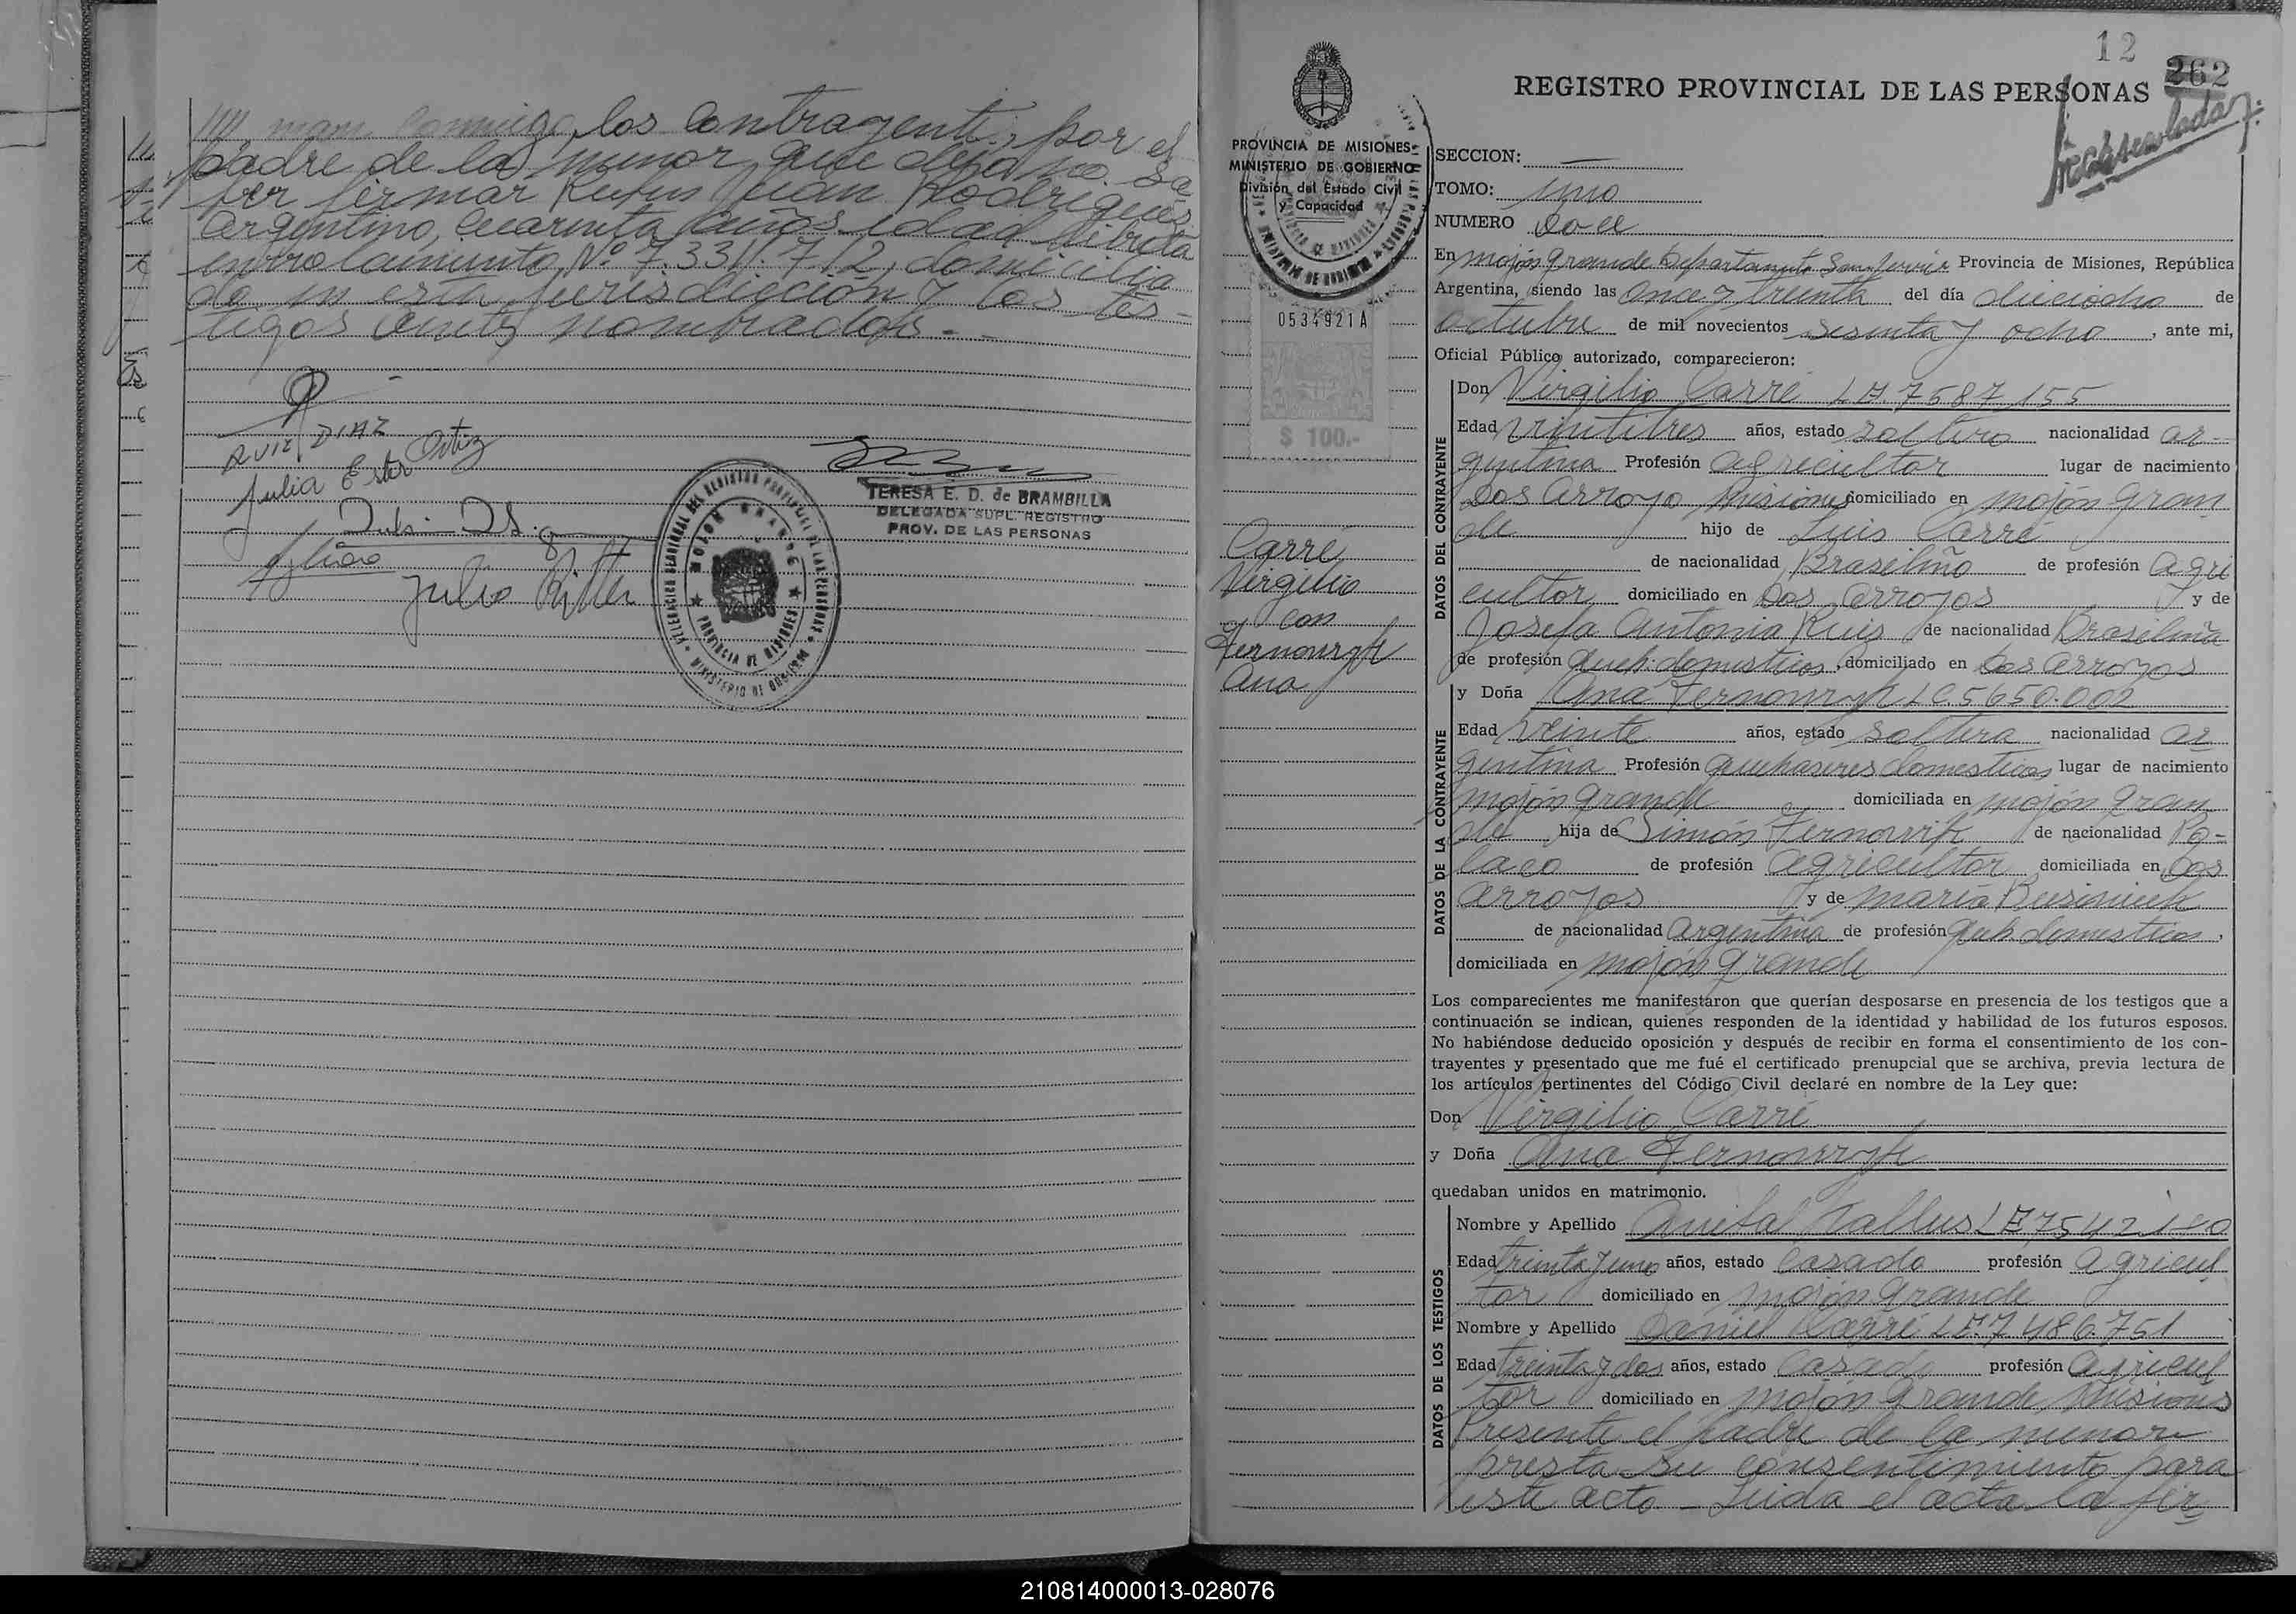 man conmigo, los contrayentes, por el
padre de la menor, que dijo no sa
ber firmar Juan Rodrigues
argentino, cuarenta años edad libreta
enrolamiento, Nº 7.331.712, domicilia
do en esta jurisdicción y los tes-
tigos antes nombrados.-
RUIZ DIAZ
Julia Ester Ortiz
Julio Ritter
TERESA E. D. de BRAMBILLA
DELEGADA SUPL. REGISTRO
PROV. DE LAS PERSONAS
MOJON GRANDE
PROVINCIA DE MISIONES
12
262
REGISTRO PROVINCIAL DE LAS PERSONAS
PROVINCIA DE MISIONES
MINISTERIO DE GOBIERNO
División del Estado Civil
y Capacidad
0534921A
$ 100.-
Carré
Virgilio
con
Fernowryk
Ana
SECCION: —
TOMO: uno
NUMERO Doce
En Mojón Grande Departamento San Javier Provincia de Misiones, República
Argentina, siendo las once y treinta del día dieciocho de
octubre de mil novecientos sesenta y ocho, ante mi,
Oficial Público autorizado, comparecieron:
DATOS DEL CONTRAYENTE
Don Virgilio Carré L E. 7587155
Edad veintitres años, estado soltero nacionalidad ar-
gentina Profesión agricultor lugar de nacimiento
Dos Arroyo Misiones domiciliado en Mojón Gran
de hijo de Luis Carré
de nacionalidad Brasileño de profesión agri
cultor domiciliado en Dos Arroyos y de
Josefa Antonia Ruiz de nacionalidad Brasileña
de profesión queh. domesticos, domiciliado en Dos Arroyos
DATOS DE LA CONTRAYENTE
y Doña Ana Fernowryk L C. 5650.002
Edad veinte años, estado soltera nacionalidad ar
gentina Profesión quehaseres domesticos lugar de nacimiento
Mojón Grande domiciliada en Mojón Gran
de hija de Simón Fernowryk de nacionalidad Po-
laco de profesión agricultor domiciliada en Dos
Arroyos y de María
de nacionalidad Argentina de profesión queh. domesticos,
domiciliada en Mojón Grande
Los comparecientes me manifestaron que querían desposarse en presencia de los testigos que a
continuación se indican, quienes responden de la identidad y habilidad de los futuros esposos.
No habiéndose deducido oposición y después de recibir en forma el consentimiento de los con-
trayentes y presentado que me fué el certificado prenupcial que se archiva, previa lectura de
los artículos pertinentes del Código Civil declaré en nombre de la Ley que:
Don Virgilio Carré
y Doña Ana Fernowryk
quedaban unidos en matrimonio.
DATOS DE LOS TESTIGOS
Nombre y Apellido Anibal
Edad treinta y uno años, estado casado profesión agricul
tor domiciliado en Mojón Grande
Nombre y Apellido Daniel Carré L E. 7486.751
Edad treinta y dos años, estado casado profesión agricul
tor domiciliado en Mojón Grande, Misiones
Presente el padre de la menor
presta su consentimiento para
este acto - Leida el acta la fir
210814000013-028076